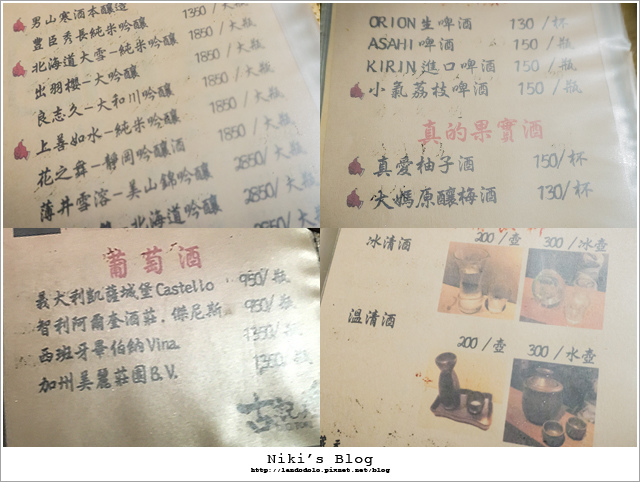 男山寒酒本釀造 1350/大瓶
豐臣秀長純米吟釀 1850/大瓶
北海道大雪–純米吟釀 1850/大瓶
出羽櫻–大吟釀 1850/大瓶
良志久–大和川吟釀 1850/大瓶
上善如水–純米吟釀 1850/大瓶
花之舞–靜岡吟釀酒 2850/大瓶
薄井雪溶–美山錦吟釀 2850/大瓶
北海道吟釀
ORION生啤酒 130/杯
ASAHI啤酒 150/瓶
KIRIN進口啤酒 150/瓶
小氣荔枝啤酒 150/瓶
真的果實酒
真愛柚子酒 150/杯
大媽原釀梅酒 130/杯
葡萄酒
義大利凱薩城堡Castello 950/瓶
智利阿爾奎酒莊.傑尼斯 950/瓶
西班牙畢伯納Vina. 1350/瓶
加州美麗莊園B.V. 1350/瓶
冰清酒 200/壺 300/冰壺
溫清酒
200/壺 300/水壺
Niki's Blog
http://landodolo.pixnet.net/blog